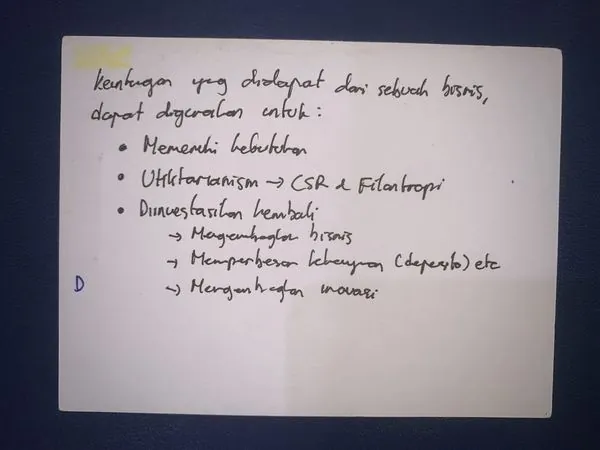 Keuntugan yang didapat dari sebuah bisnis,
dapat digunakan untuk:
• Memenuhi kebutuhan
• Utilitarianism → CSR & Filantropi
• Diinvestasikan kembali
→ Mengembagkan bisnis
→ Memperbesar kekayaan (deposito) etc
→ Mengembagkan inovasi
D